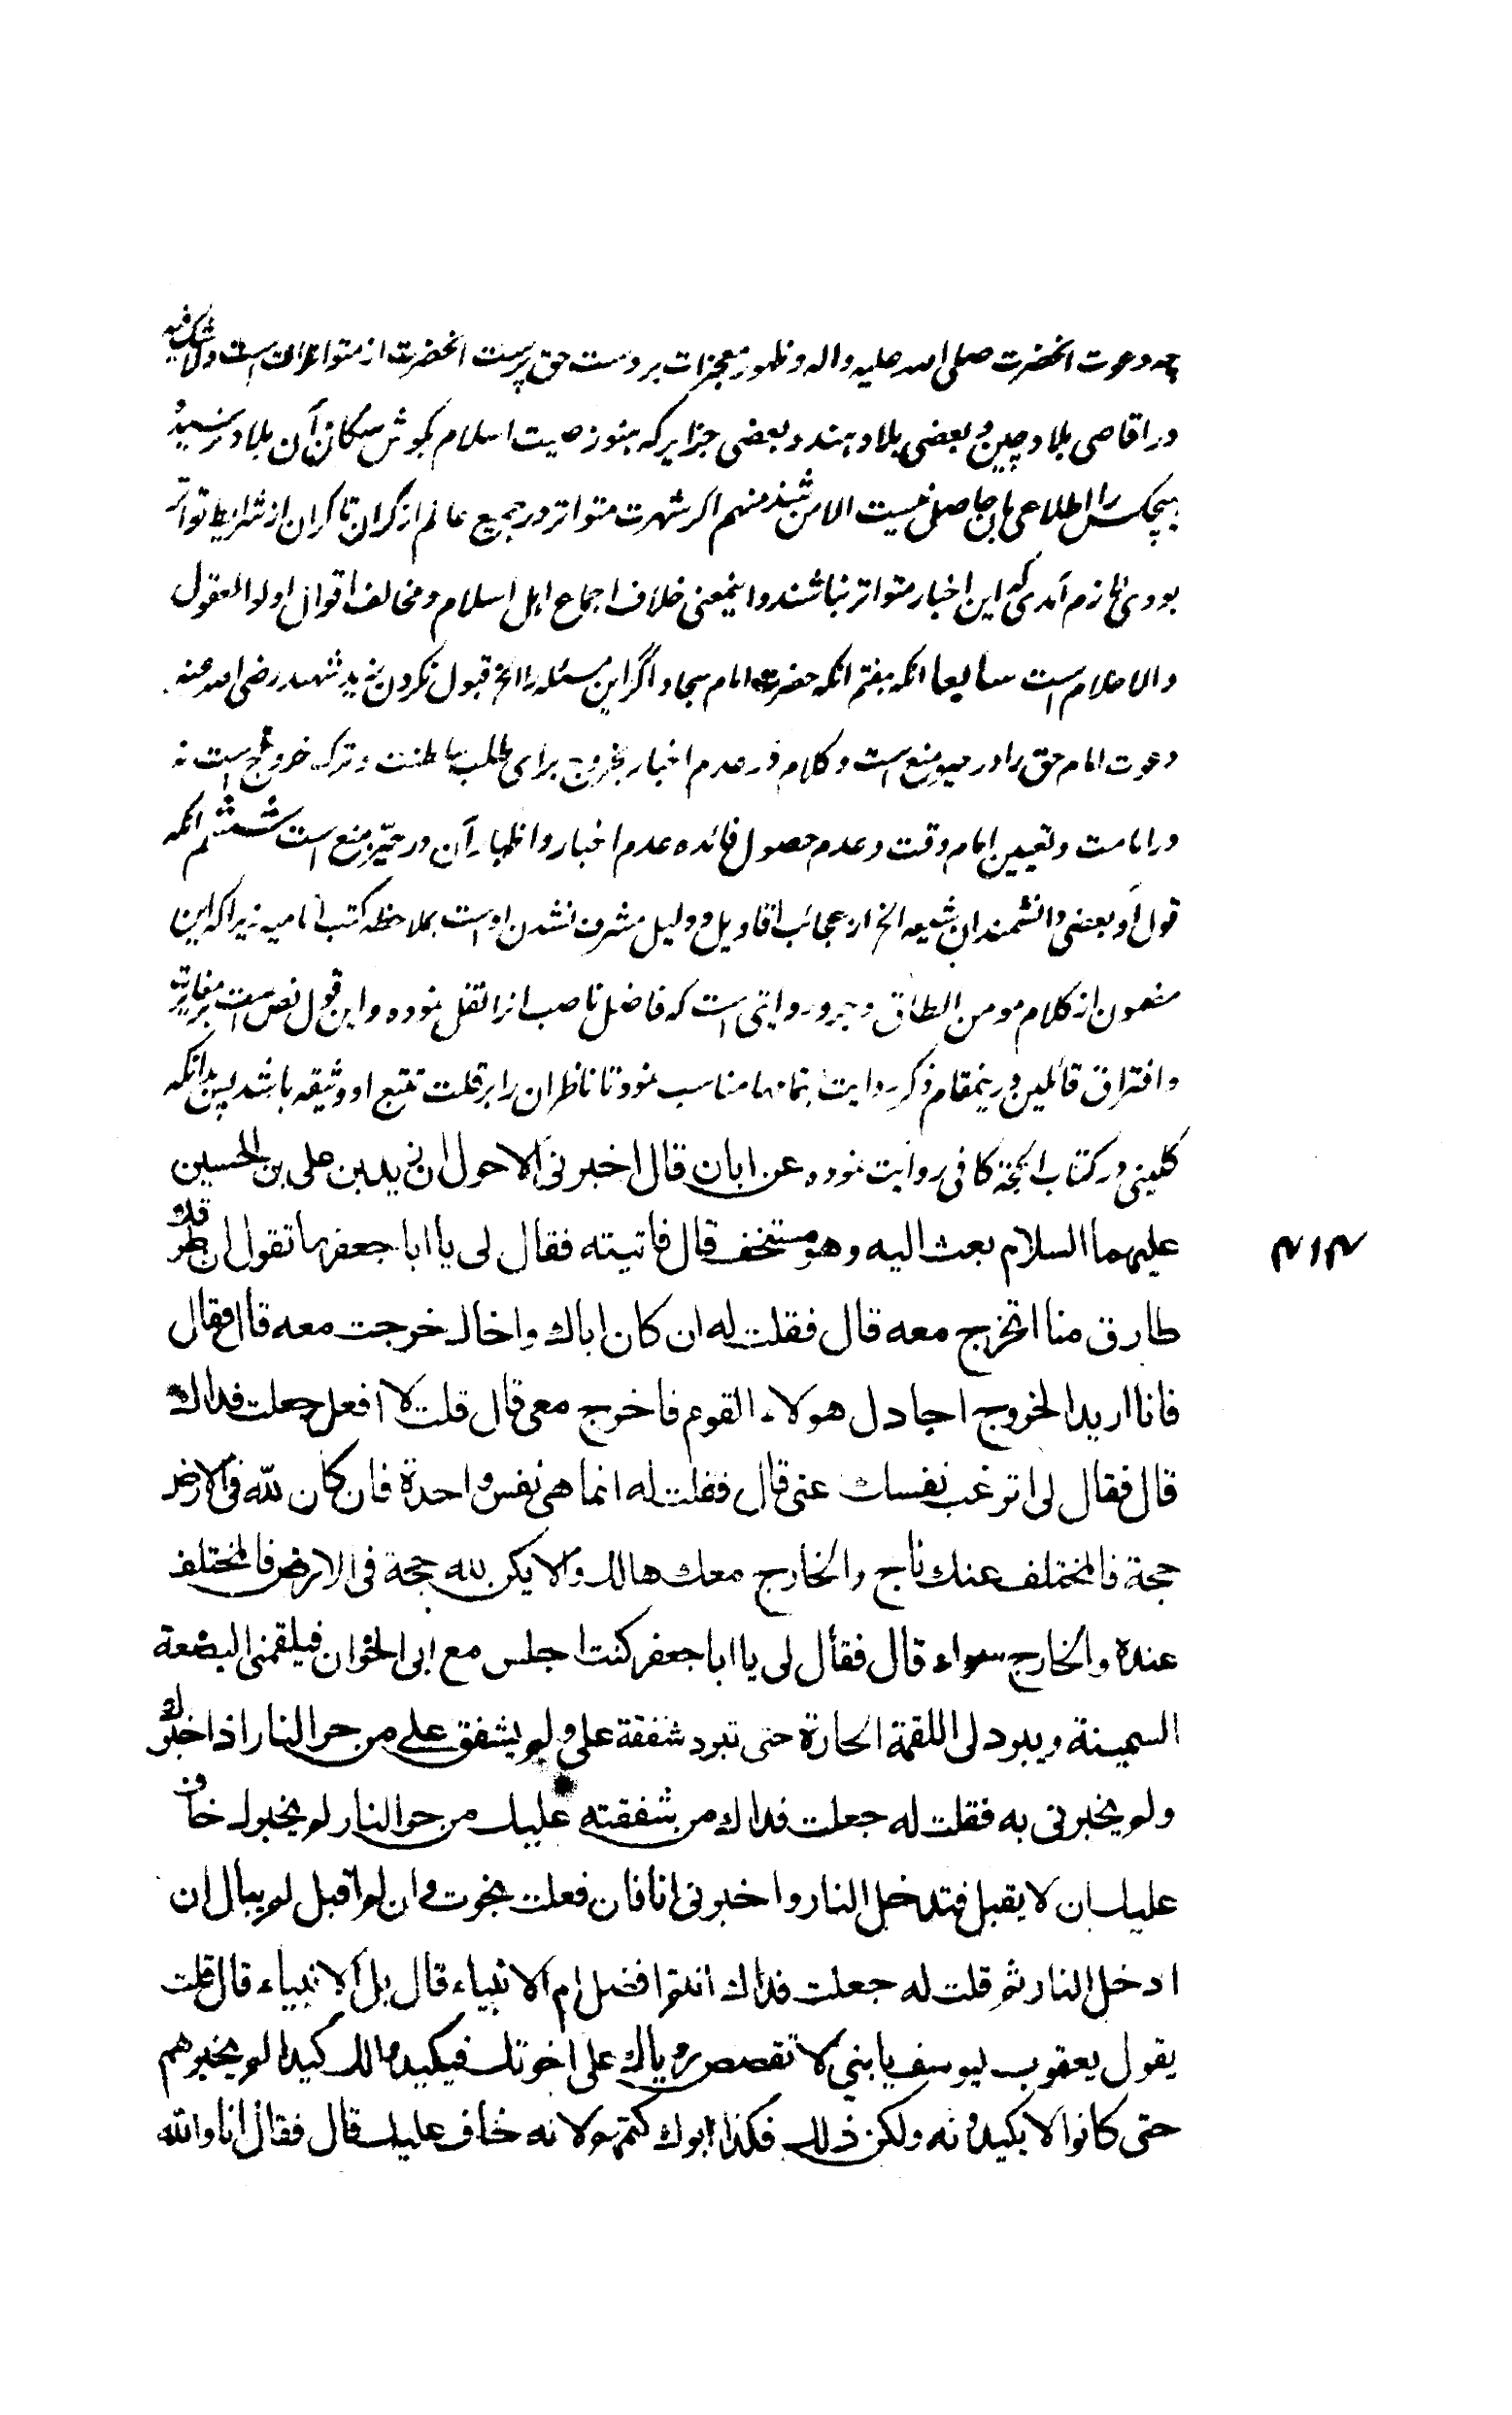 چه دعوت انحضرت صلی الله علیه واله و ظهور معجزات بر دست حق پرست انحضرت از متواترات است ولا شک فیه
در اقاصی بلاد چین و بعضی بلاد هند و بعضی جزایر که هنوز صیت اسلام بگوش سکان آن بلاد نرسیده
هیچکس را اطلاعی بان حاصل نیست الا من شذ منهم اکر شهرت متواتر در جمیع عالم از کران تا کران از شرایط تواتر
بودی لازم آمدی که این اخبار متواتر نباشند و اینمعنی خلاف اجماع اهل اسلام و مخالف اقوال اولوا العقول
والاحلام است سابعا انکه هفتم انکه حضرت امام سجاد اگر این مسئله را الخ قبول نکردن زید شهید رضی الله عنه
دعوت امام حق را در حیز منع است و کلام در عدم اخبار بخروج برای طلب سلطنت و ترک خروج است نه
در امامت و تعیین امام وقت و عدم حصول فائده عدم اخبار و اظهار آن در حیّز منع است ششتم انکه
قول او بعضی دانشمندان شیعه الخ از عجائب اقاویل و دلیل مشرف نشدن او است بملاحظه کتب امامیه زیرا که این
مضمون از کلام مومن الطاق و جزو روایتی است که فاضل ناصب انرا نقل نموده و این قول نص است بر مغایرت
و افتراق قائلین درینمقام ذکر روایت بتمامها مناسب نمود تا ناظران را بر قلت تتبع او وثیقه باشد پس بدانکه
کلینی در کتاب الحجة کافی روایت نموده عن ابان قال اخبرنی الاحول ان زید بن علی بن الحسین
علیهما السلام بعث الیه وهو مستخف قال فاتیته فقال لی یا ابا جعفر ما تقول ان طرقک
طارق منا اتخرج معه قال فقلت له ان کان اباك واخاك خرجت معه قال فقال
فانا ارید الخروج اجادل هولاء القوم فاخرج معی قال قلت لا افعل جعلت فداك
قال فقال لی اترغب نفسك عنی قال فقلت له انما هی نفس واحدة فان کان لله فی الارض
حجة فالمختلف عنك ناج والخارج معك هالك والا یکن لله حجة فی الارض فالمختلف
عنده والخارج سواء قال فقال لی یا ابا جعفر کنت اجلس مع ابی الخوان فیلقمنی البضعة
السمینة ویبرد لی اللقمة الحارة حتی تبرد شفقة علی ولم یشفق علی من حر النار اذا اخبرك
ولم یخبرنی به فقلت له جعلت فداك من شفقته علیك من حر النار لم یخبرك خاف
علیك ان لا یقبل فتدخل النار واخبرنی انا فان فعلت نجوت وان لم اقبل لم یبال ان
ادخل النار ثم قلت له جعلت فداك انتم افضل ام الانبیاء قال بل الانبیاء قال قلت
یقول یعقوب لیوسف یا بنی لا تقصص رویاك علی اخوتك فیکیدوا لك کیدا لم یخبرهم
حتی کانوا لا یکیدونه ولکن ذلك فکذا ابوك کتمك لانه خاف علیك قال فقال انا والله
۴۱۴